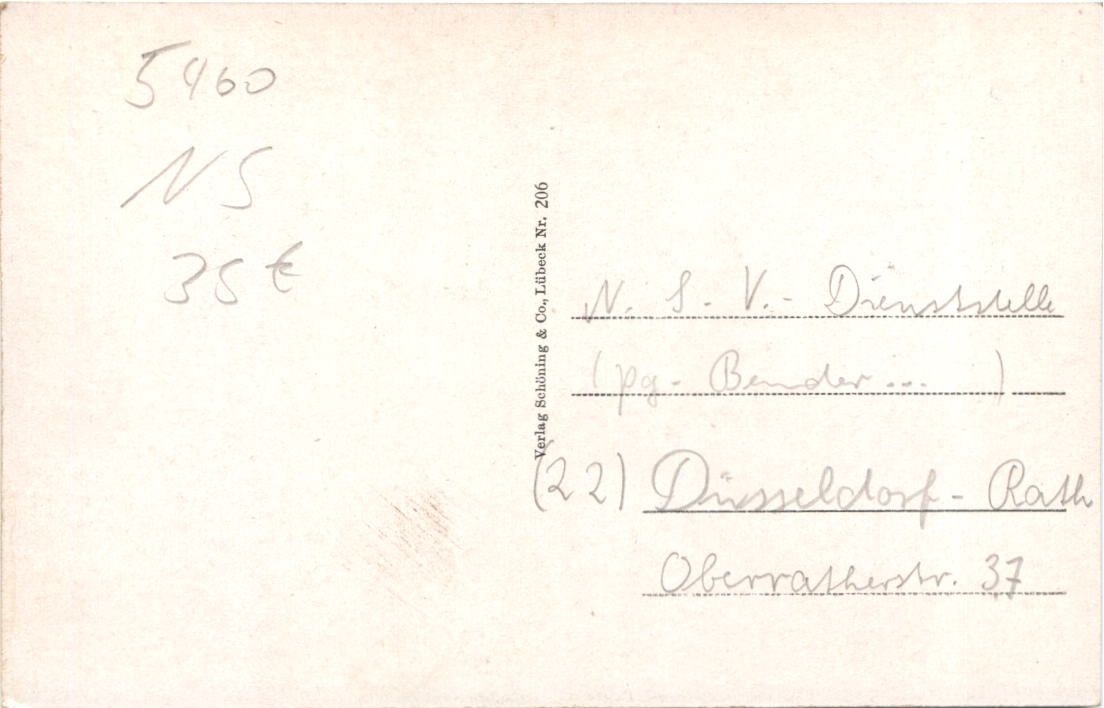 5460
NS
35 €
Verlag Schöning & Co., Lübeck Nr. 206
N. S. V. - Dienststelle
(pg. Bender ... )
(22) Düsseldorf - Rath
Oberratherstr. 37